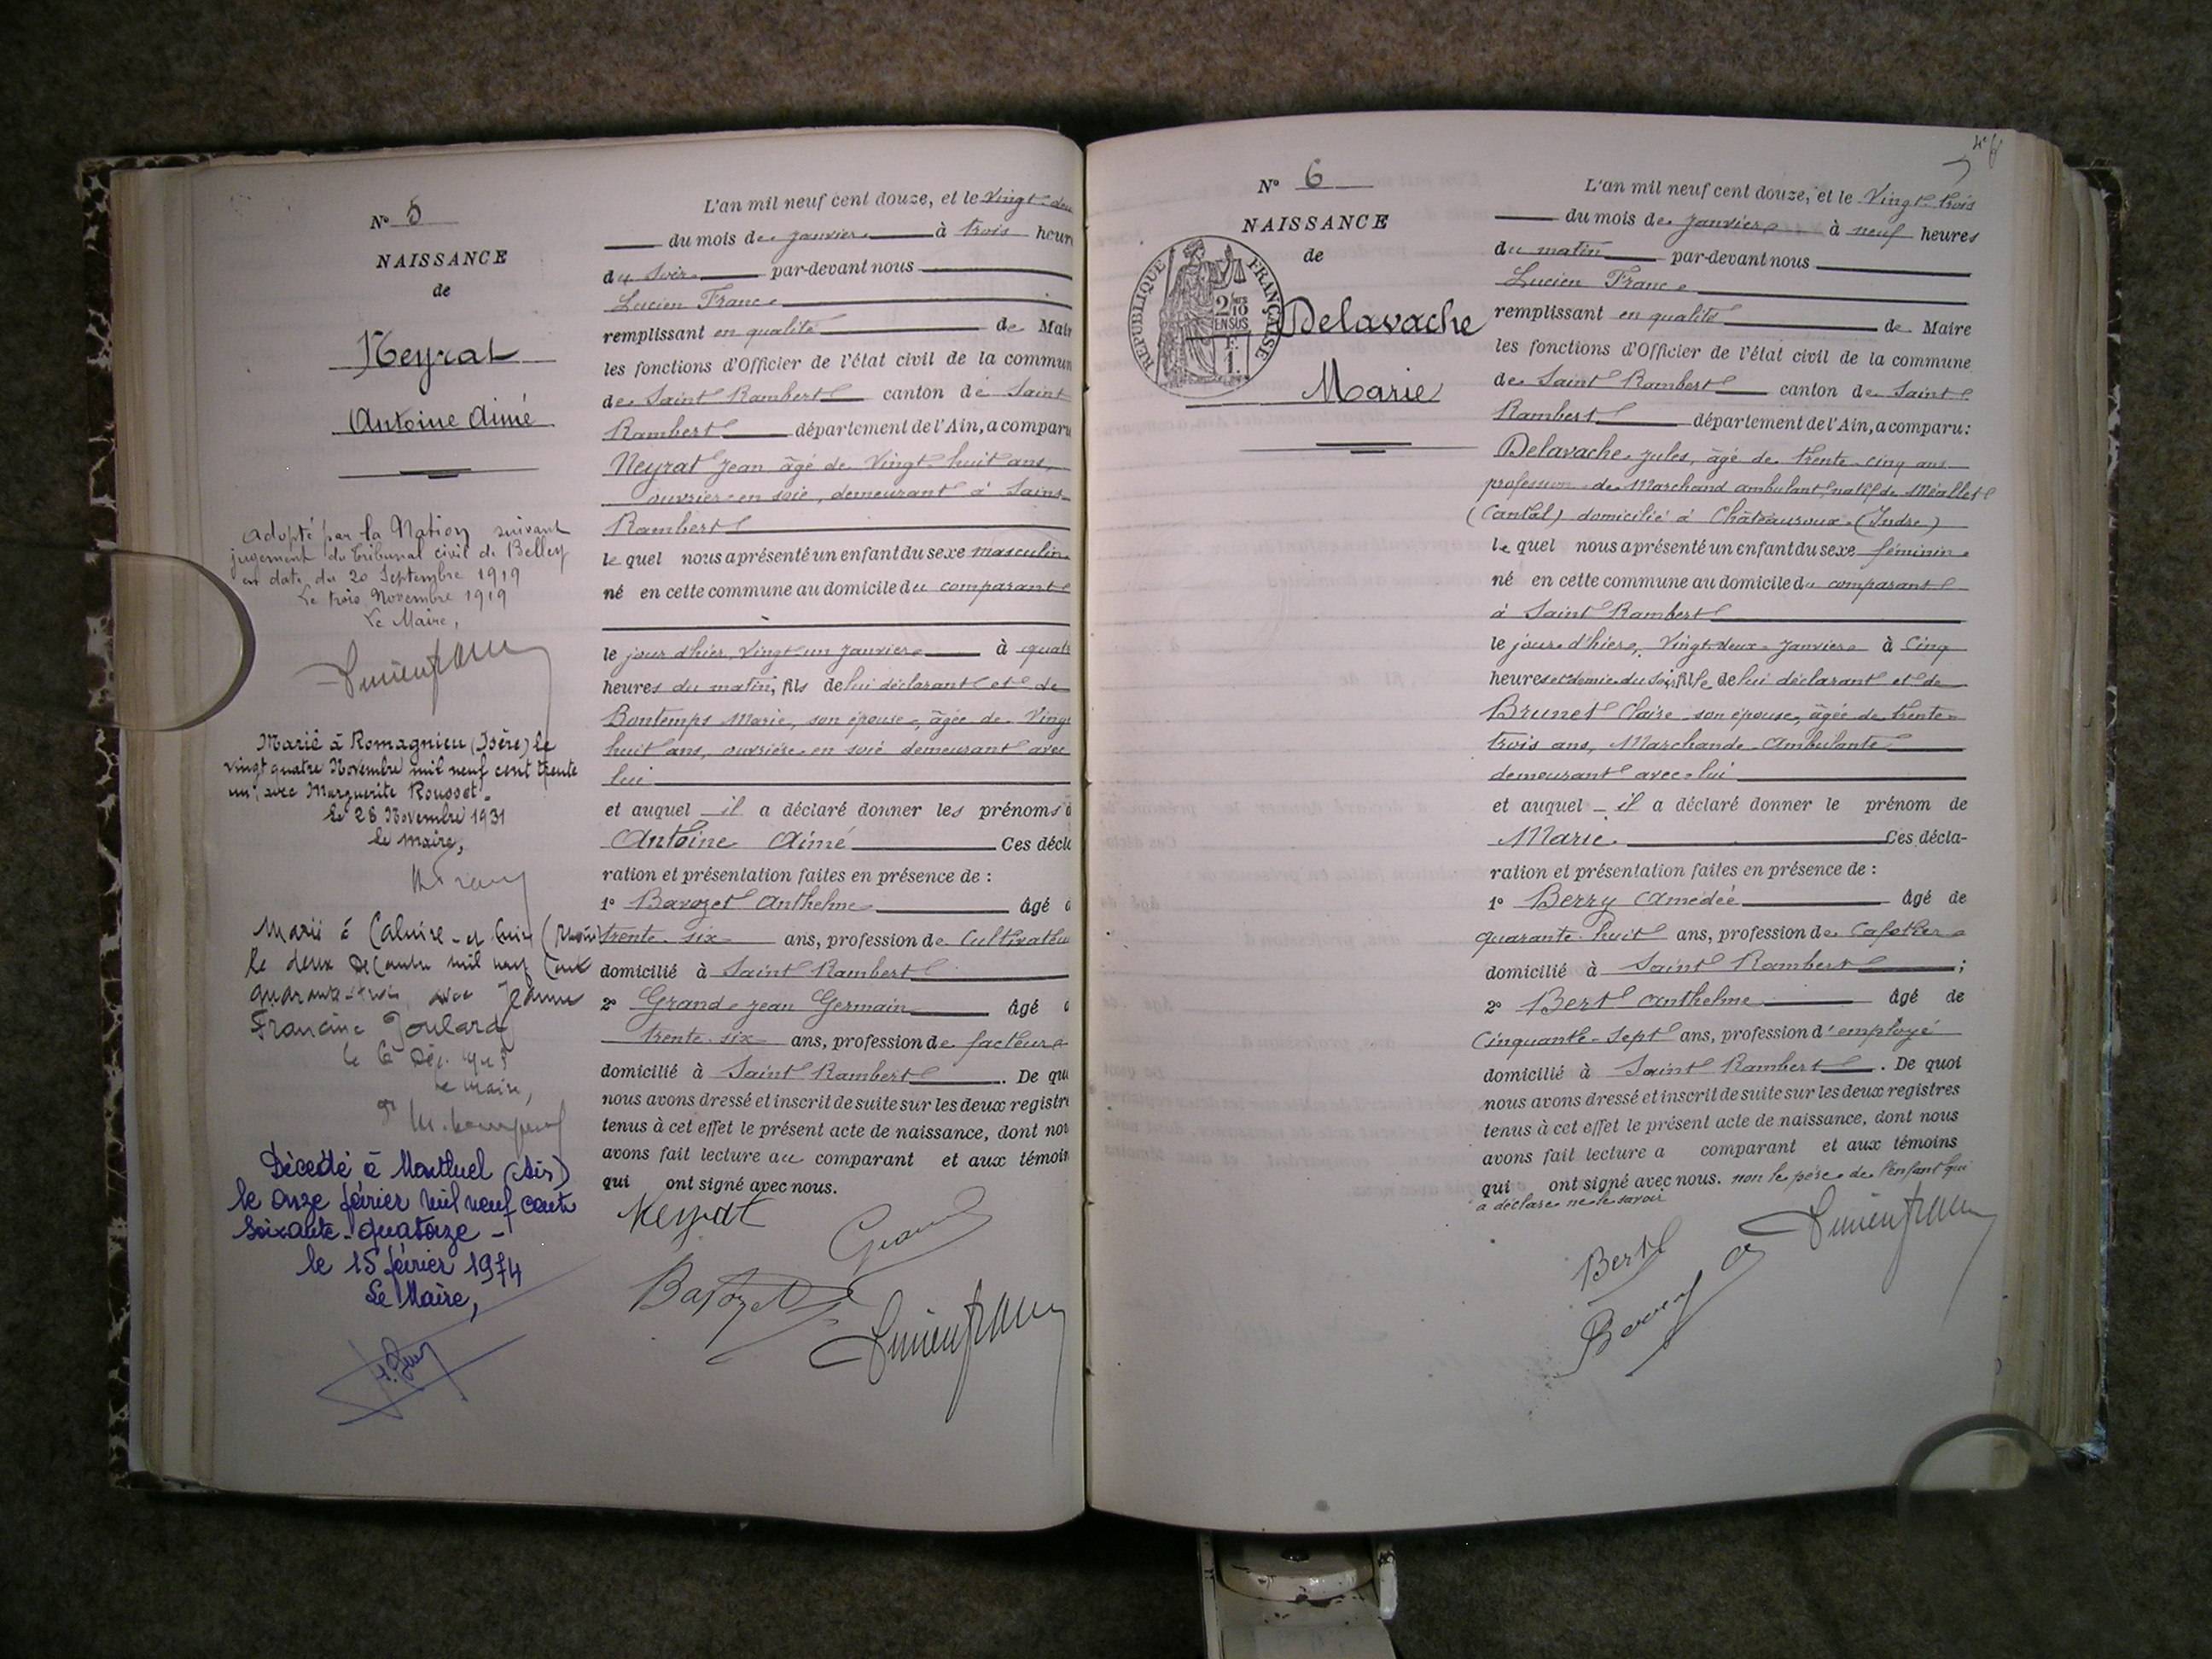 N° 5
NAISSANCE
de
Neyrat
Antoine Aimé
Adopté par la Nation suivant
jugement du Tribunal civil de Belley
en date du 20 Septembre 1919
Le trois Novembre 1919
Le Maire,
Lucien Franc
Marié à Romagnieu (Isère) le
vingt quatre Novembre mil neuf cent trente
un, avec Marguerite Rousset.
Le 26 Novembre 1931
Le maire,
Marié à Caluire-et-Cuire (Rhône)
le deux Décembre mil neuf cent
quarante-trois avec Jeanne
Francine Goulard
le 6 Déc. 1943
Le maire,
Décédé à Montluel (Ain)
le onze février mil neuf cent
soixante-quatorze -
le 15 février 1974
Le Maire,
L'an mil neuf cent douze, et le Vingt-deux
du mois de janvier à trois heure
du soir par-devant nous
Lucien Franc
remplissant en qualité de Mair
les fonctions d'Officier de l'état civil de la commun
de Saint Rambert canton de Saint
Rambert département de l'Ain, a comparu
Neyrat Jean âgé de Vingt-huit ans,
ouvrier en soie, demeurant à Saint-
Rambert
le quel nous a présenté un enfant du sexe masculin
né en cette commune au domicile du comparant
le jour d'hier, vingt-un janvier à quatr
heures du matin, fils de lui déclarant et de
Bontemps Marie, son épouse, âgée de Vingt
huit ans, ouvrière en soie demeurant avec
lui
et auquel il a déclaré donner les prénoms d
Antoine Aimé Ces décla
ration et présentation faites en présence de :
1° Bavozet Anthelme âgé d
trente-six ans, profession de Cultivateu
domicilié à Saint Rambert
2° Grand-jean Germain âgé d
trente-six ans, profession de facteur
domicilié à Saint Rambert. De quo
nous avons dressé et inscrit de suite sur les deux registre
tenus à cet effet le présent acte de naissance, dont nou
avons fait lecture au comparant et aux témoin
qui ont signé avec nous.
Neyrat
Grand
Bavozet
Lucien Franc
N° 6
NAISSANCE
de
RÉPUBLIQUE FRANÇAISE
2/10
EN SUS
1 F.
Delavache
Marie
L'an mil neuf cent douze, et le Vingt-trois
du mois de janvier à neuf heures
du matin par-devant nous
Lucien Franc
remplissant en qualité de Maire
les fonctions d'Officier de l'état civil de la commune
de Saint Rambert canton de Saint
Rambert département de l'Ain, a comparu:
Delavache Jules, âgé de trente-cinq ans
profession de Marchand ambulant, natif de Méallet
(Cantal) domicilié à Châteauroux (Indre)
le quel nous a présenté un enfant du sexe féminin
né en cette commune au domicile du comparant
à Saint Rambert
le jour d'hier, Vingt-deux janvier à Cinq
heures et demie du soir, fille de lui déclarant et de
Brunet Claire son épouse, âgée de trente-
trois ans, Marchande Ambulante
demeurant avec lui
et auquel il a déclaré donner le prénom de
Marie. Ces décla-
ration et présentation faites en présence de :
1° Berry Amédée âgé de
quarante-huit ans, profession de Cafetier
domicilié à Saint Rambert ;
2° Bert Anthelme âgé de
Cinquante-sept ans, profession d'employé
domicilié à Saint Rambert. De quoi
nous avons dressé et inscrit de suite sur les deux registres
tenus à cet effet le présent acte de naissance, dont nous
avons fait lecture a comparant et aux témoins
qui ont signé avec nous. non le père de l'enfant qui
a déclaré ne le savoir
Bert
Lucien Franc
Berry